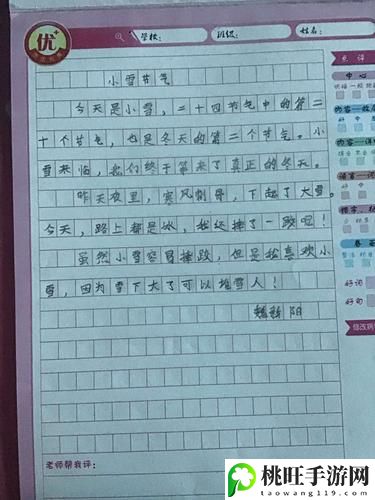 优
学校：
班级：
姓名：
小雪节气
今天是小雪，二十四节气中的第二
十个节气，也是冬天的第二个节气。小
雪来临，我们终于等来了真正的冬天。
昨天夜里，寒风刺骨，下起了大雪。
今天，路上都是冰，我还摔了一跤呢！
虽然小雪容易摔跤，但是我喜欢小
雪，因为雪下大了可以堆雪人！
阳
老师帮我评：
点评
中心
好词
好句
桃旺手游网
taowang119.com